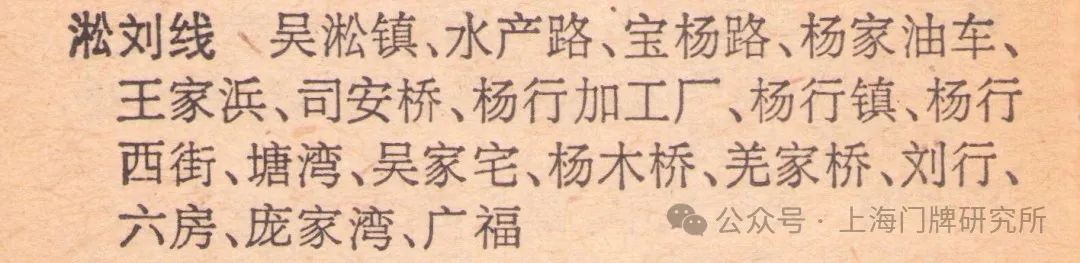 淞刘线 吴淞镇、水产路、宝杨路、杨家油车、
王家浜、司安桥、杨行加工厂、杨行镇、杨行
西街、塘湾、吴家宅、杨木桥、羌家桥、刘行、
六房、庞家湾、广福
公众号·上海门牌研究所